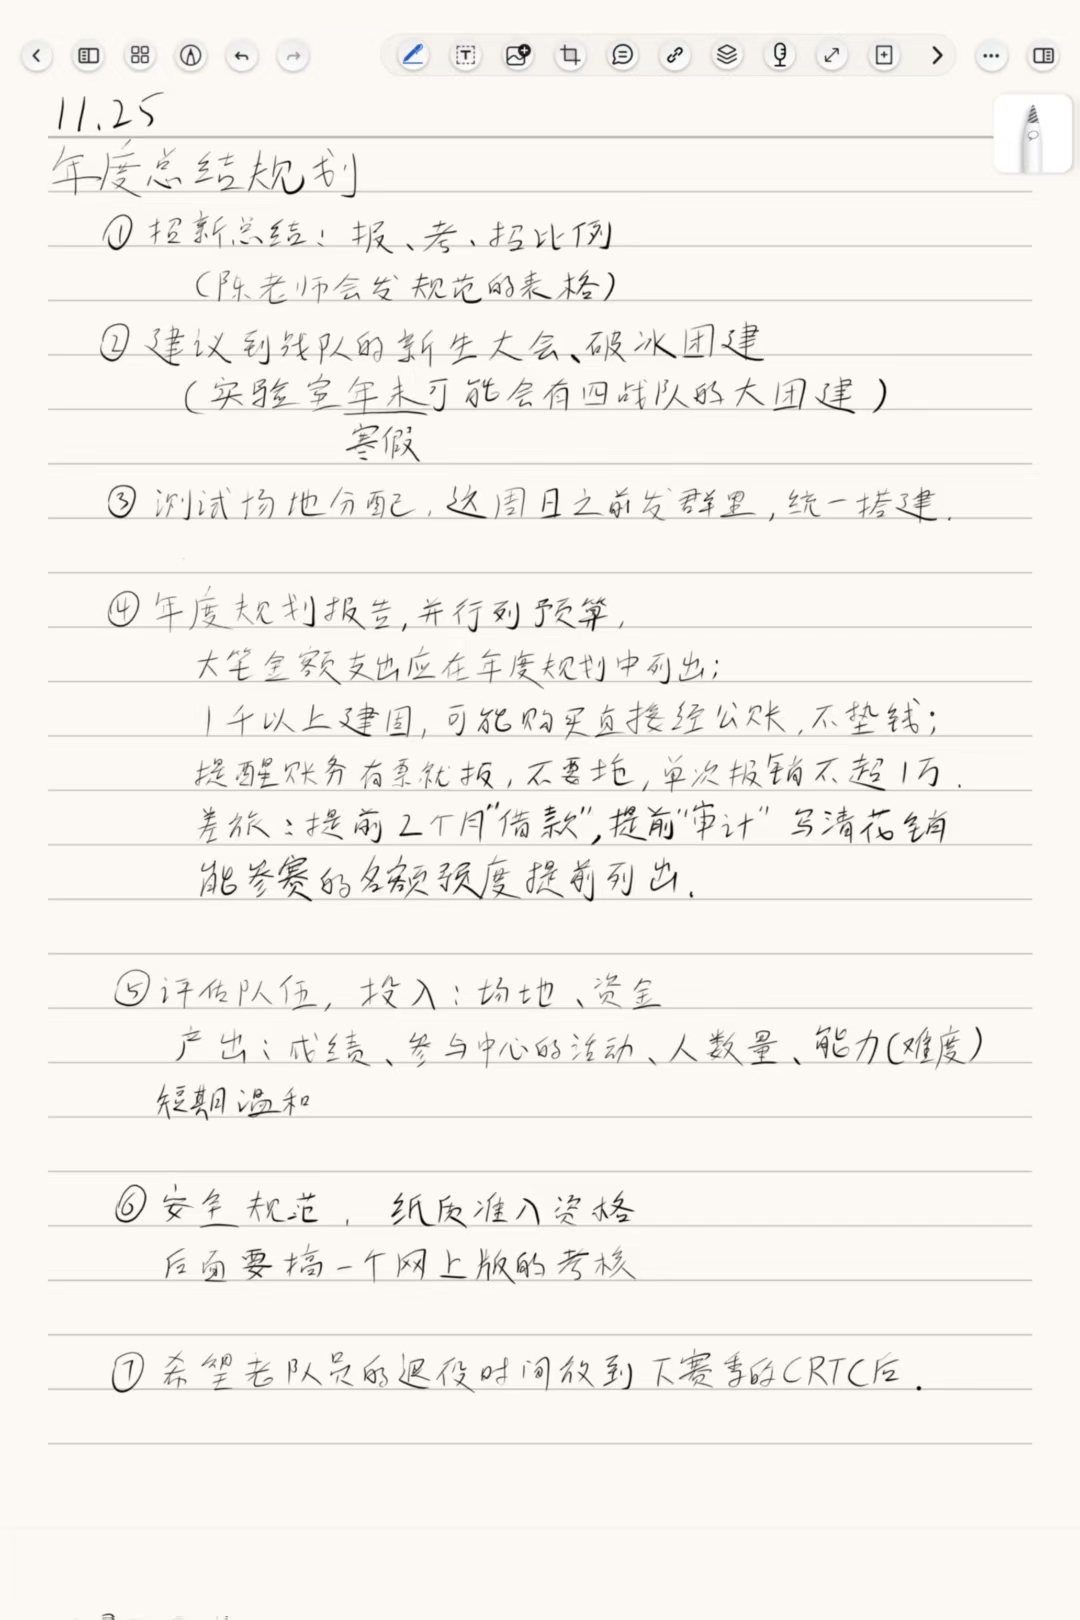 11.25
年度总结规划
① 招新总结：报、考、招比例
（陈老师会发规范的表格）
② 建议到战队的新生大会、破冰团建
（实验室年末可能会有四战队的大团建）
寒假
③ 测试场地分配，这周日之前发群里，统一搭建.
④ 年度规划报告，并行列预算，
大笔金额支出应在年度规划中列出；
1千以上建固，可能购买直接经公账，不垫钱；
提醒账务有票就报，不要拖，单次报销不超1万.
差旅：提前2个月"借款"，提前"审计" 写清花销
能参赛的名额强度提前列出.
⑤ 评估队伍，投入：场地、资金
产出：成绩、参与中心的活动、人数量、能力（难度）
短期温和
⑥ 安全规范，纸质准入资格
后面要搞一个网上版的考核
⑦ 希望老队员的退役时间放到下赛季的CRTC后.